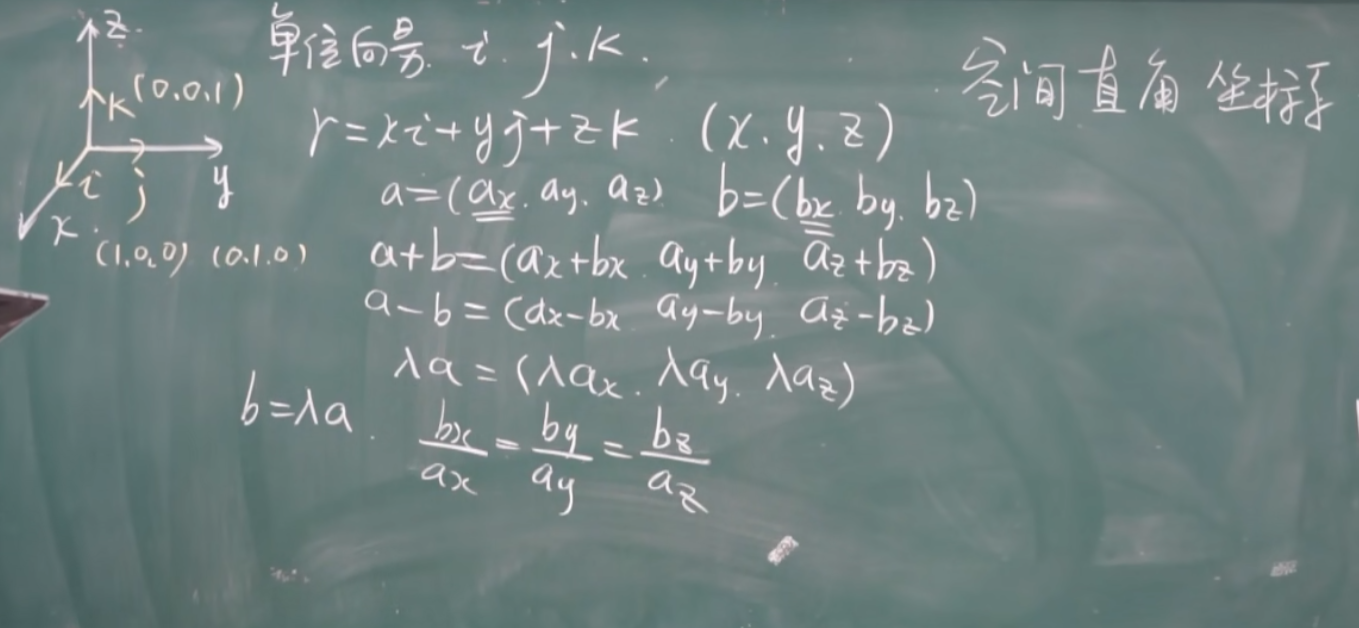 z
k (0,0,1)
i j y
x
(1,0,0) (0,1,0)
单位向量 i. j. k.
空间直角坐标系
r=xi+yj+zk. (x.y.z)
a=(ax. ay. az) b=(bx. by. bz)
a+b=(ax+bx. ay+by. az+bz)
a-b=(ax-bx. ay-by. az-bz)
λa=(λax. λay. λaz)
b=λa. bx/ax = by/ay = bz/az